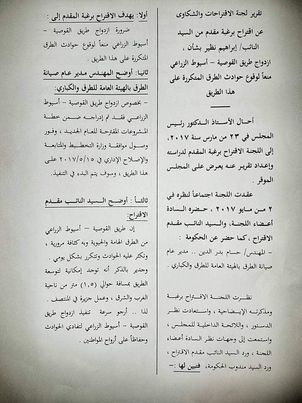 تقرير لجنة الاقتراحات والشكاوى
عن اقتراح برغبة مقدم من السيد
النائب/ إبراهيم نظير بشأن ،
ازدواج طريق القوصية – أسيوط الزراعي
منعاً لوقوع حوادث الطرق المتكررة على
هذا الطريق
أحال الأستاذ الدكتور رئيس
المجلس في ٢٣ من مارس سنة ٢٠١٧،
إلى اللجنة الاقتراح برغبة المقدم لدراسته
وإعداد تقرير عنه يعرض على المجلس
الموقر .
عقدت اللجنة اجتماعاً لنظره في
٢ من مايو ٢٠١٧ ، حضره السادة
أعضاء اللجنة، والسيد النائب مقدم
الاقتراح ، كما حضر عن الحكومة :
– المهندس/ حسام بدر الدين .. مدير عام
صيانة الطرق بالهيئة العامة للطرق والكباري .
نظرت اللجنة الاقتراح برغبة
ومذكرته الإيضاحية ، واستعادت نظر
الدستور ، واللائحة الداخلية للمجلس ،
واستمعت إلى وجهات نظر السادة أعضاء
اللجنة ، ورد السيد النائب مقدم الاقتراح ،
ورد السيد مندوب الحكومة، فتبين لها :–
أولاً: يهدف الاقتراح برغبة المقدم إلى :
ضرورة ازدواج طريق القوصية –
أسيوط الزراعي منعاً لوقوع حوادث الطرق
المتكررة على هذا الطريق .
ثانياً: أوضح المهندس مدير عام صيانة
الطرق بالهيئة العامة للطرق والكباري:
– بخصوص ازدواج طريق القوصية – أسيوط
الزراعي فقد تم إدراجه ضمن خطة
المشروعات المقترحة للعام الجديد ، وفور
وصول موافقة وزارة التخطيط والمتابعة
والإصلاح الإداري في ٢٠١٧/٥/١٥ على
ذلك ، وسوف يتم البدء في التنفيذ.
ثالثاً : أوضح السيد النائب مقدم
الاقتراح:
إن طريق القوصية – أسيوط الزراعي
من الطرق الهامة والحيوية وبه كثافة مرورية ،
وتكثر عليه الحوادث وتتكرر بشكل يومي .
وجدير بالذكر أنه توجد إمكانية لتوسعة
الطريق لمسافة حوالي (١,٥) متر من ناحية
الغرب والشرق ، وعمل جزيرة في المنتصف .
لذا .. أرجو سرعة تنفيذ ازدواج طريق
القوصية – أسيوط الزراعي لتفادي الحوادث
وحفاظاً على أرواح المواطنين .